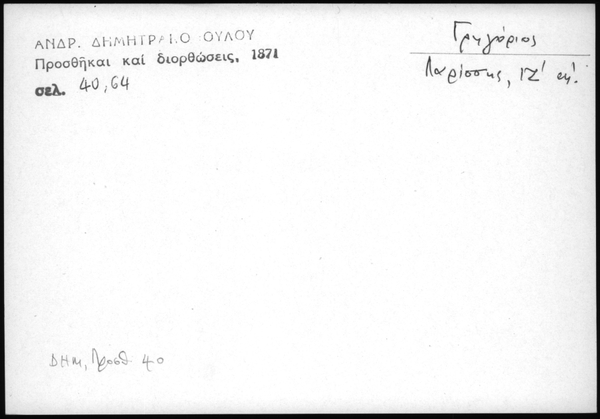 ΑΝΔΡ. ΔΗΜΗΤΡΑΚΟΠΟΥΛΟΥ
Προσθῆκαι καί διορθώσεις, 1871
σελ. 40,64
Γρηγόριος
Λαρίσσης, ΙΖ' αἰ.
ΔΗΜ, Προσθ 40